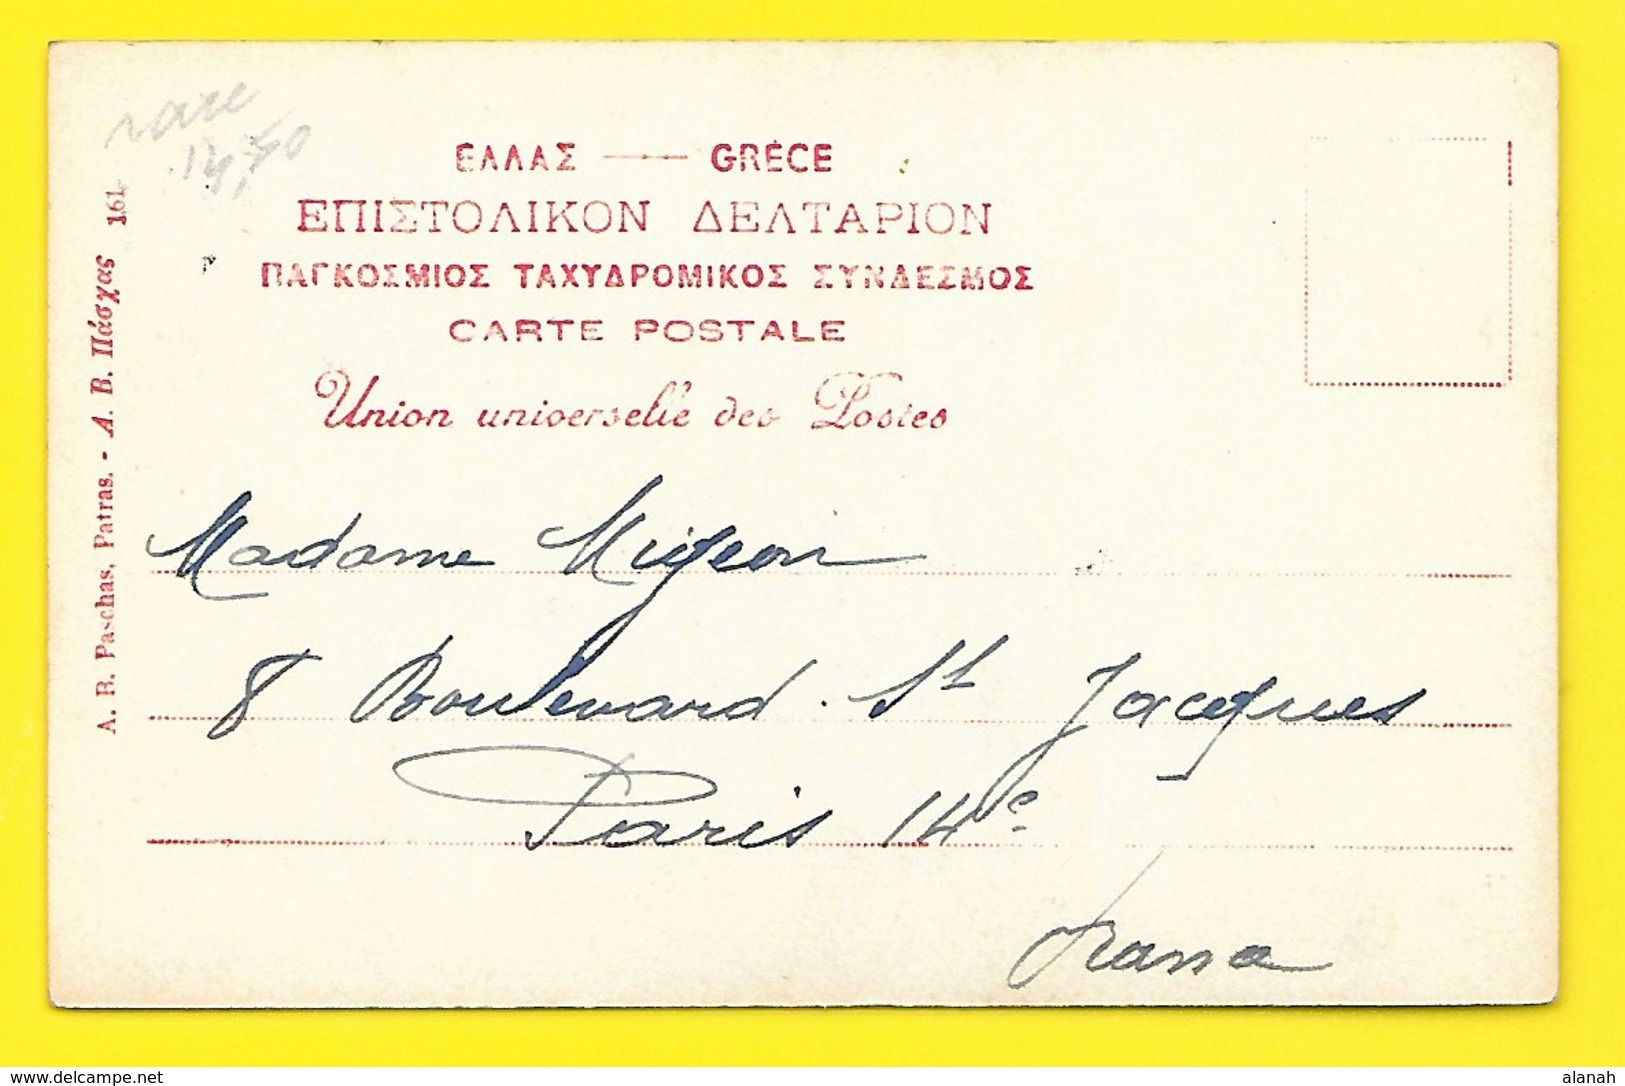 rare
14,50
ΕΛΛΑΣ — GRÈCE
ΕΠΙΣΤΟΛΙΚΟΝ ΔΕΛΤΑΡΙΟΝ
ΠΑΓΚΟΣΜΙΟΣ ΤΑΧΥΔΡΟΜΙΚΟΣ ΣΥΝΔΕΣΜΟΣ
CARTE POSTALE
Union universelle des Postes
A. B. Paschas, Patras. - Α. Β. Πάσχας 161
Madame Migeon
8 Boulevard St Jacques
Paris 14e
France
delcampe.net
alanah